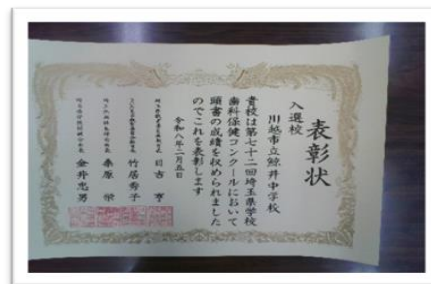 表彰状
入選校
川越市立鯨井中学校
貴校は第七十二回埼玉県学校
歯科保健コンクールにおいて
顕書の成績を収められました
のでこれを表彰します
令和八年二月五日
日吉 亨
竹居秀子
桑原 栄
金井忠男